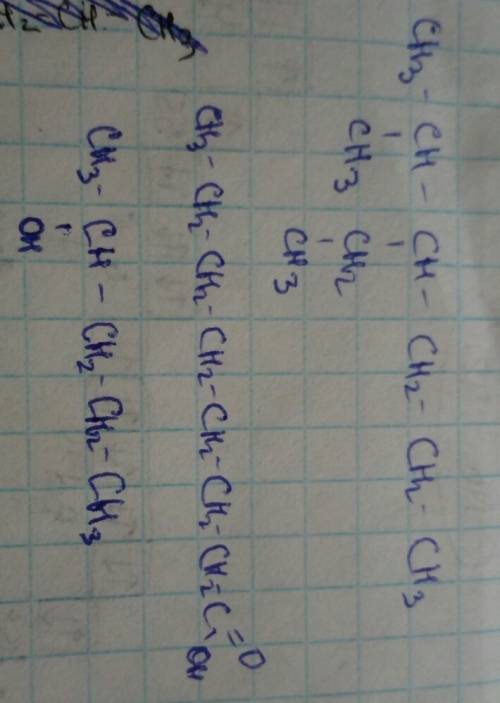 CH3 - CH - CH - CH2 - CH2 - CH3
CH3 CH2
CH3
CH3 - CH2 - CH2 - CH2 - CH2 - CH2 - CH2 - C = O
OH
CH3 - CH - CH2 - CH2 - CH3
OH